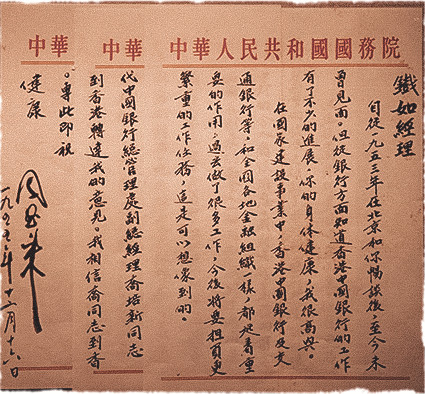 中華人民共和國國務院
鐵如經理
自從一九五三年在北京和你暢談後,至今未
曾見面。但從銀行方面知道香港中國銀行的工作
有了不少的進展,你的身体健康,我很高興。
在國家建設事業中,香港中國銀行及交
通銀行等,和全國各地金融組織一樣,都起着重
要的作用,過去做了很多工作,今後將要担負更
繁重的工作任務,這是可以想像到的。
中華
代中國銀行總管理處副總經理喬培新同志
到香港轉達我的意見。我相信喬同志到香
中華
。專此即祝
健康
周恩来
一九五五年十二月十六日